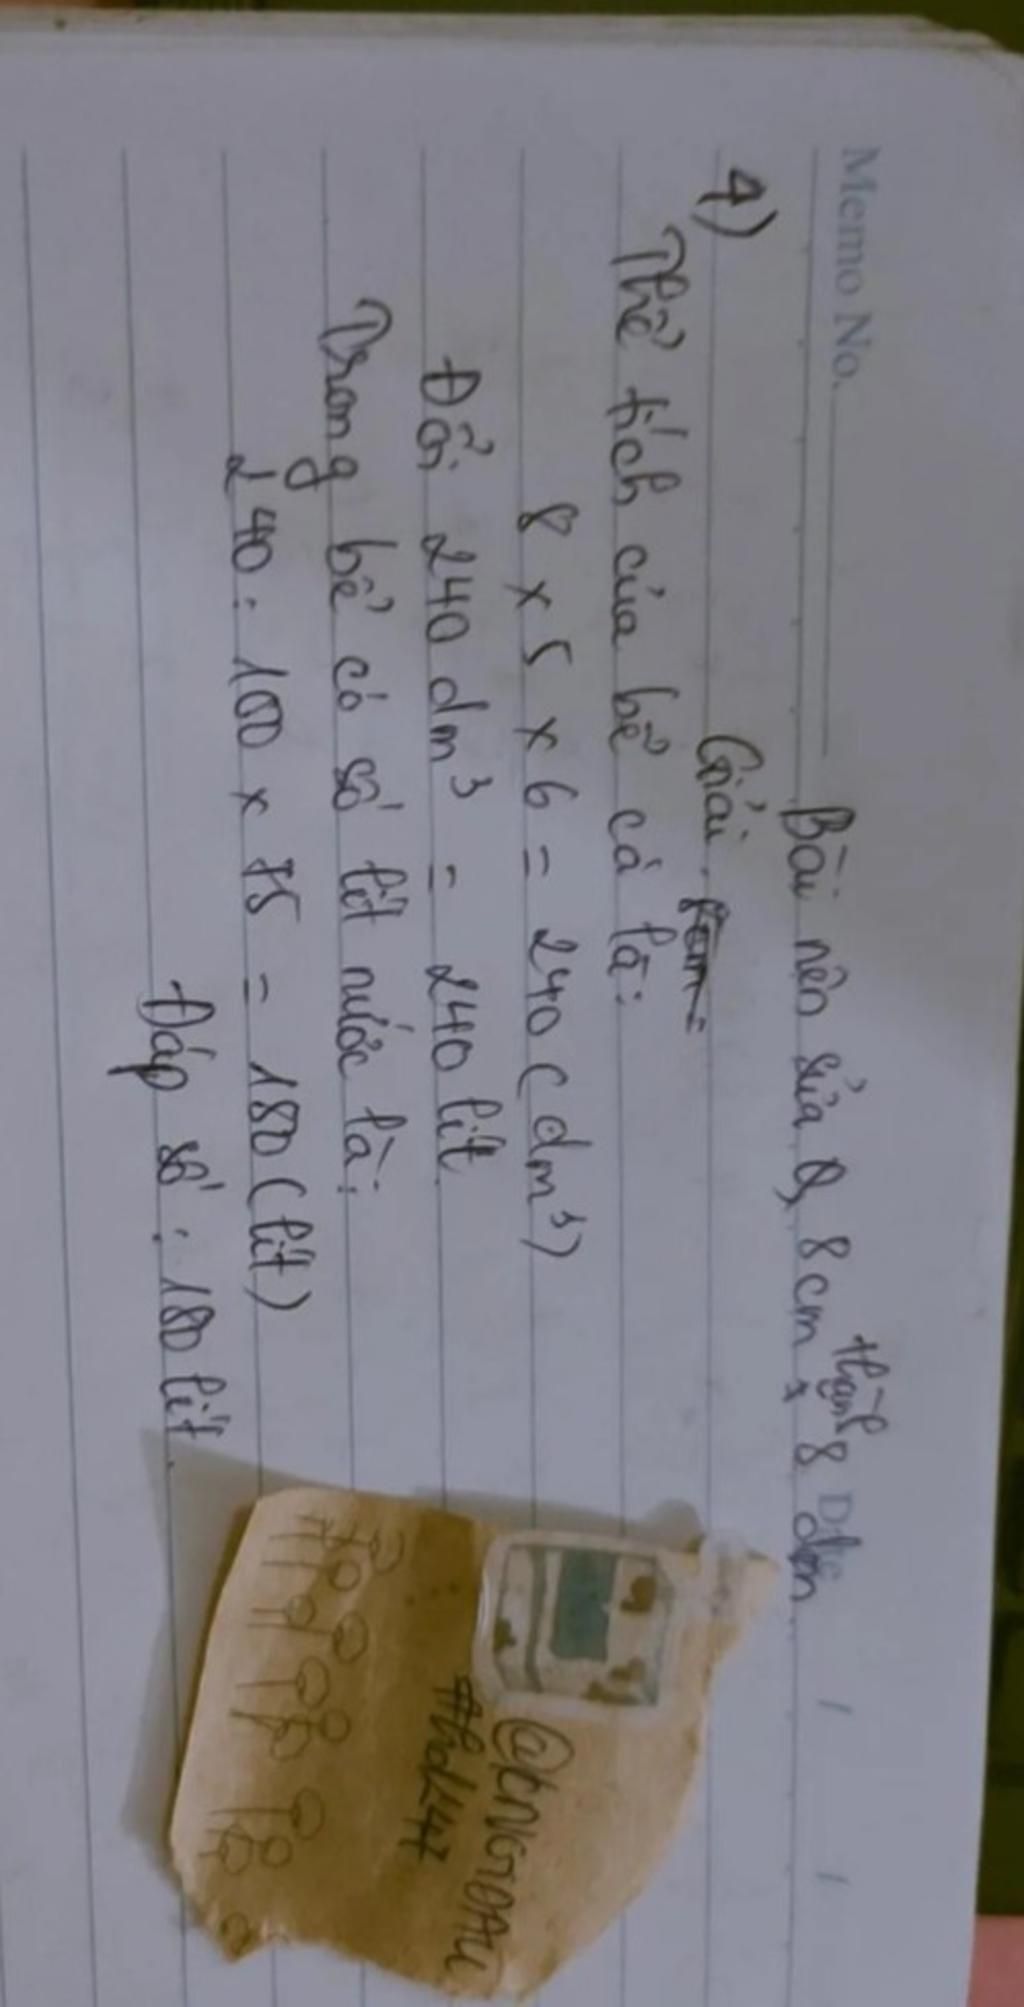 Memo No.
Bài nên sửa 8 cm thành 8 dm
4)
Giải
Thể tích của bể cá là:
8 x 5 x 6 = 240 (dm³)
Đổi 240 dm³ = 240 lít
Trong bể có số lít nước là:
240 : 100 x 75 = 180 (lít)
Đáp số : 180 lít.
#hd247